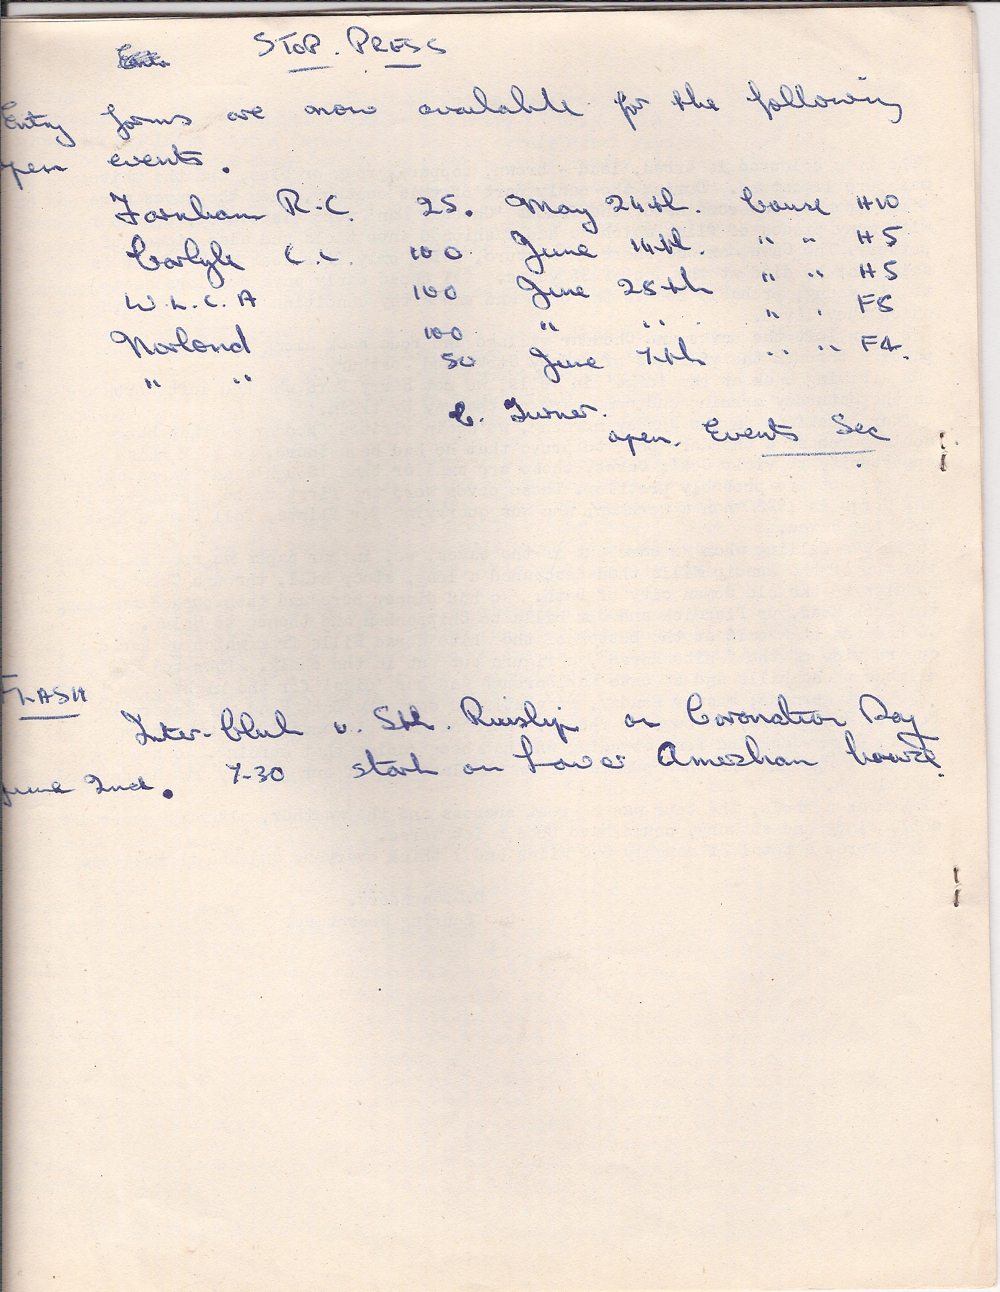 STOP. PRESS
Entry forms are now available for the following
open events.
Farnham R.C. 25. May 24th. Course H10
Carlyle C.C. 100 June 14th. " " H5
W.L.C.A 100 June 28th " " H5
Norlond 100 " " " " F5
" " 50 June 7th " " F4.
C. Turner.
open. Events Sec
FLASH
Inter-Club v. Sth. Ruislip on Coronation Day
June 2nd. 7-30 start on Lower Amersham